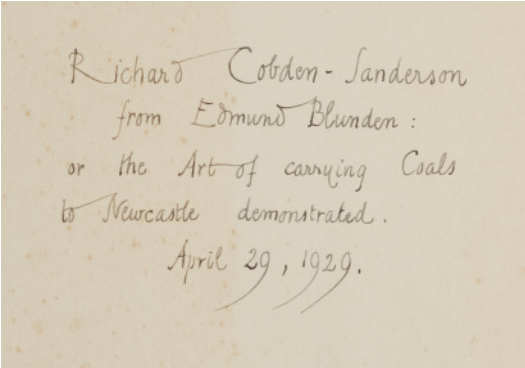 Richard Cobden-Sanderson
from Edmund Blunden:
or the Art of carrying Coals
to Newcastle demonstrated.
April 29, 1929.